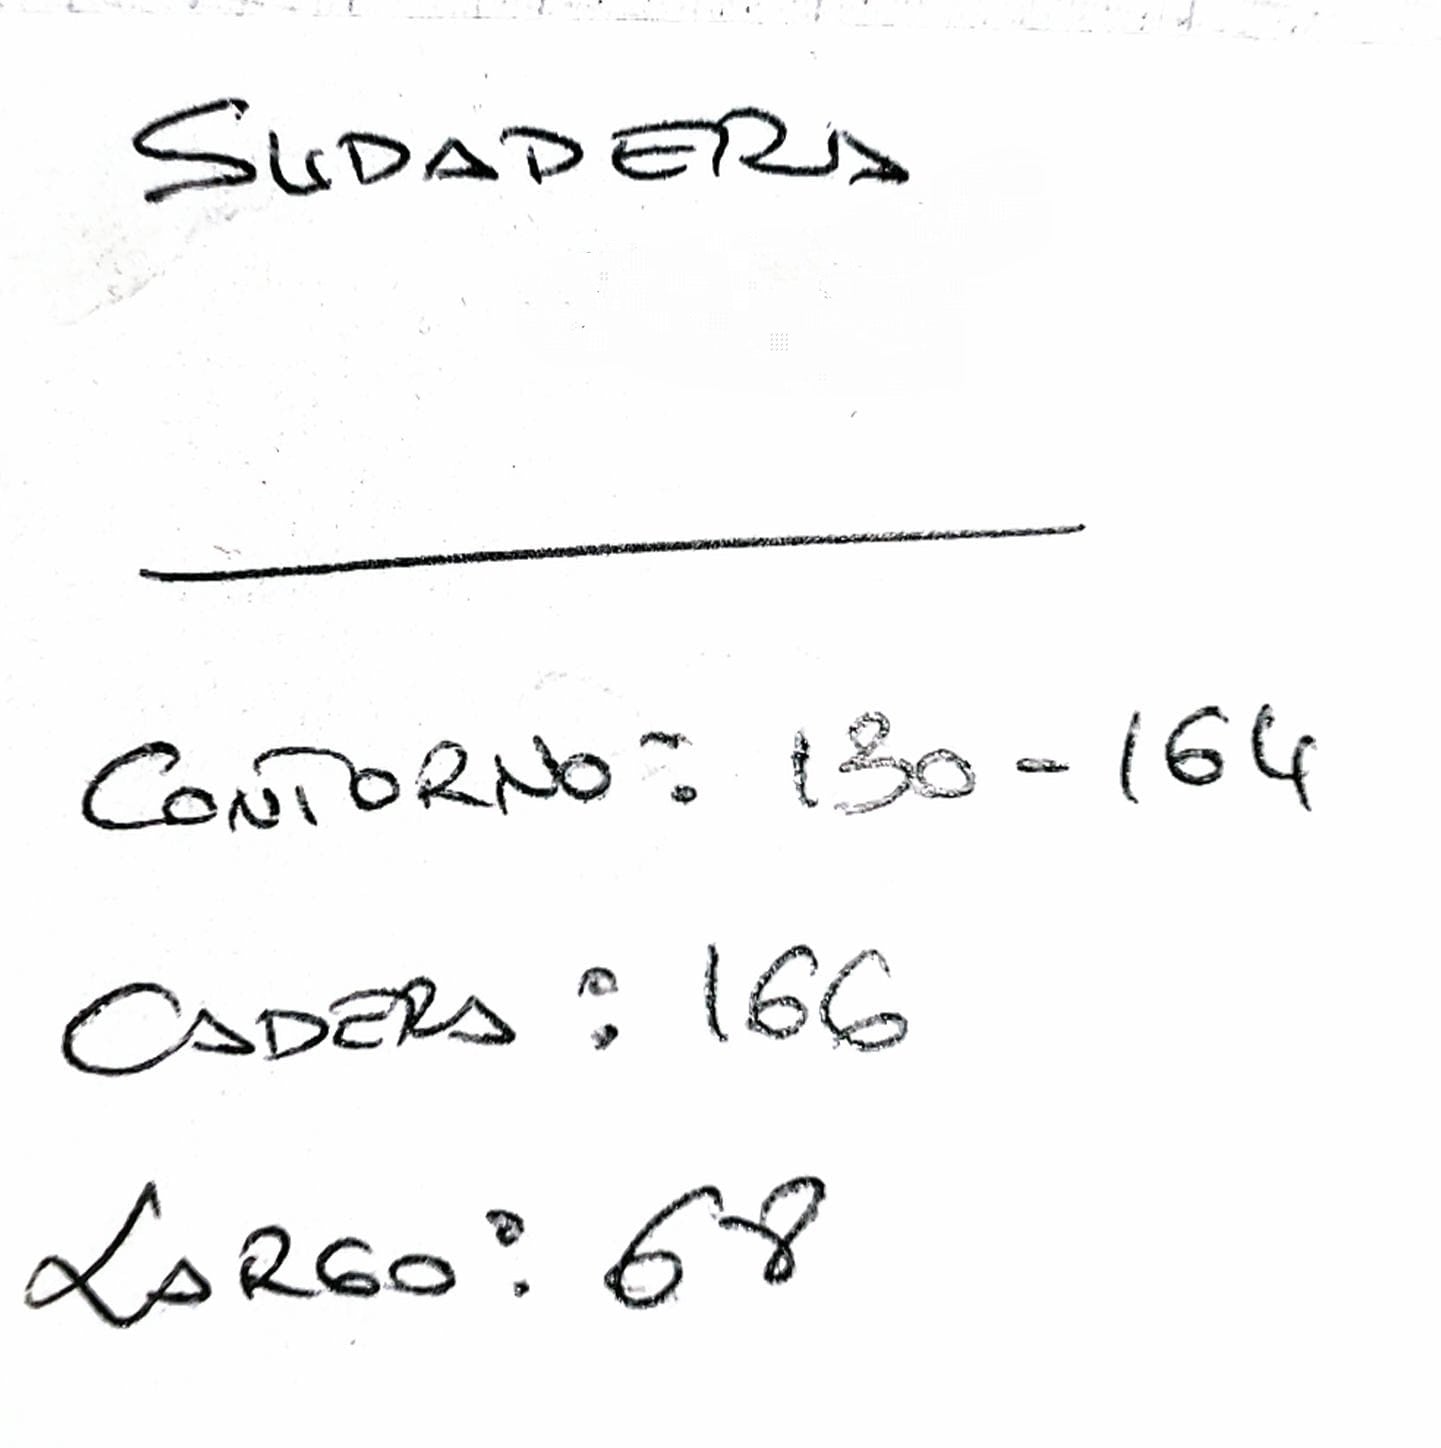 SUDADERA
CONTORNO: 130 - 164
CADERA: 166
LARGO: 68